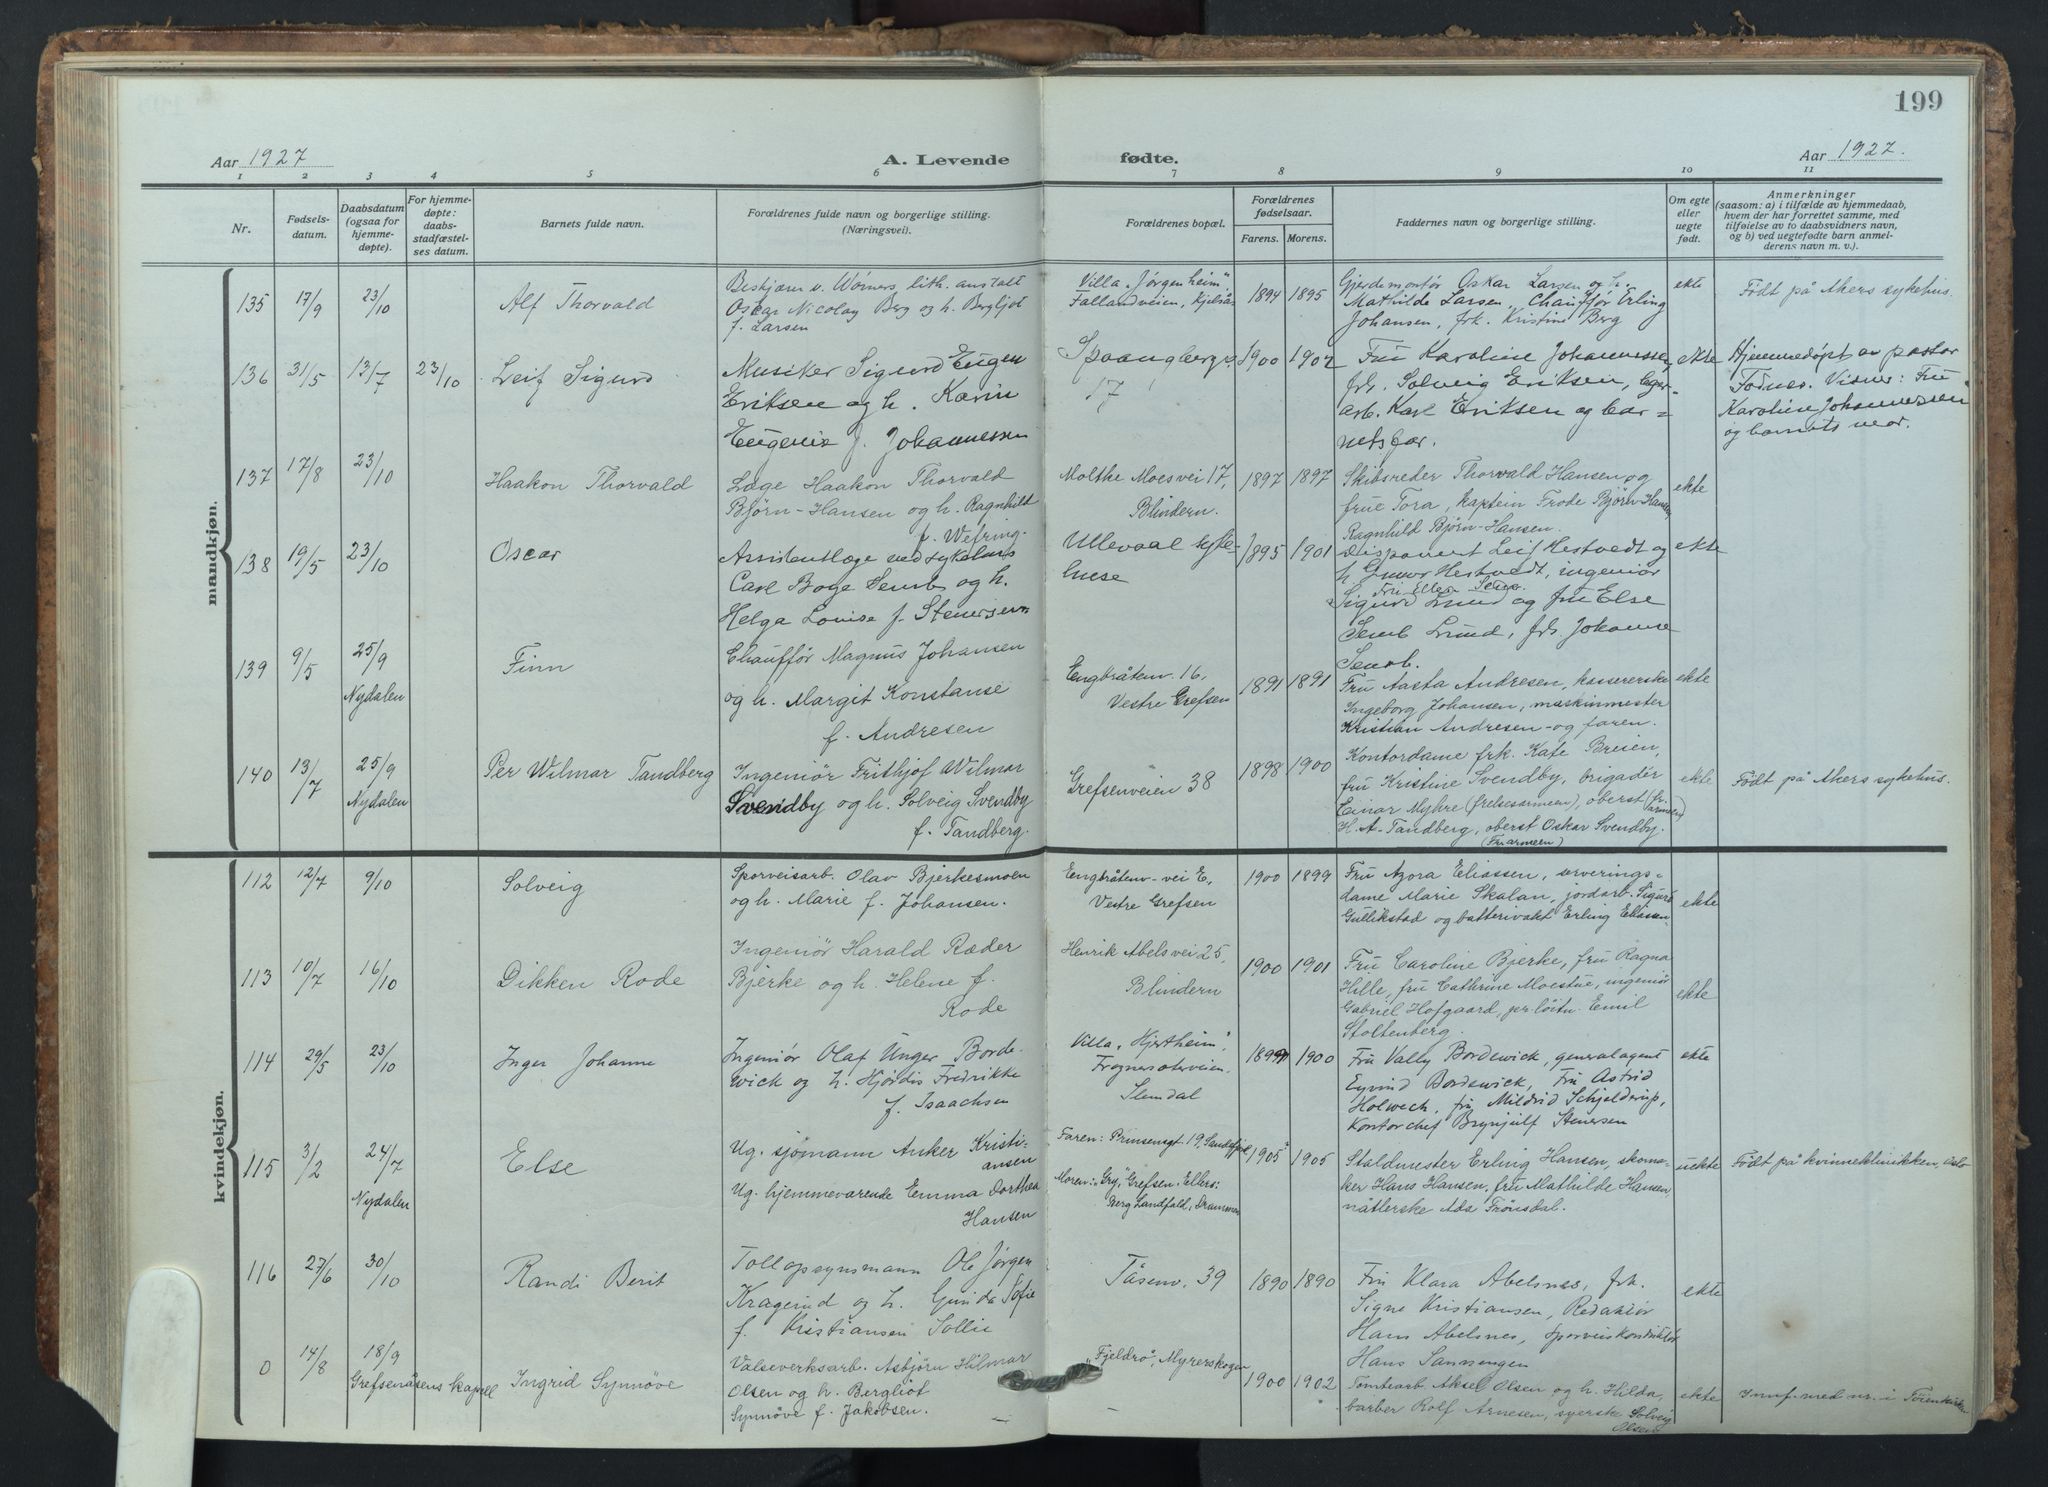 199
Aar 1927
A. Levende
fødte.
Aar 1927.
1 2 3 4 5 6 7 8 9 10 11
Nr.
Fødsels-
datum.
Daabsdatum
(ogsaa for
hjemme-
døpte).
For hjemme-
døpte:
daabs-
stadfæstel-
ses datum.
Barnets fulde navn.
Forældrenes fulde navn og borgerlige stilling.
(Næringsvei).
Forældrenes bopæl.
Forældrenes
fødselsaar.
Farens. Morens.
Faddernes navn og borgerlige stilling.
Om egte
eller
uegte
født.
Anmerkninger
(saasom: a) i tilfælde av hjemmedaab,
hvem der har forrettet samme, med
tilføielse av to daabsvidners navn,
og b) ved uegtefødte barn anmel-
derens navn m. v.).
mandkjøn.
135 17/9 23/10
Alf Thorvald
Beskjærer v. Wörners lith. anstalt
Oscar Nicolay Berg og h. Bergljot
f. Larsen
Villa "Jørgenheim",
Fallandveien, Kjelsås
1894 1895
Gjerdemontør Oskar Larsen og h.
Mathilde Larsen, Chauffør Erling
Johansen, frk. Kristine Berg
ekte
Født på Akers sykehus.
136 31/5 13/7 23/10
Leif Sigurd
Musiker Sigurd Eugen
Eriksen og h. Karin
Eugenie f. Johannessen
Spaangbergv.
17
1900 1902
Fru Karoline Johannessen,
frk. Solveig Eriksen, lager-
arb. Karl Eriksen og bar-
netsfar.
ekte
Hjemmedøpt av pastor
Fodnes. Vidner: Fru
Karoline Johannessen
og barnets mor.
137 17/8 23/10
Haakon Thorvald
Læge Haakon Thorvald
Bjørn-Hansen og h. Ragnhild
f. Wefring.
Molthe Moesvei 17,
Blindern.
1897 1897
Skibsreder Thorvald Hansen og
frue Tora, kaptein Frode Bjørn-Hansen,
Ragnhild Bjørn-Hansen.
ekte
138 19/5 23/10
Oscar
Assistentlæge ved sykehus
Carl Boye Semb og h.
Helga Louise f. Stenersen
Ullevaal syke-
huse
1895 1901
Disponent Leif Hestvedt og
h. Gunvor Hestvedt, ingeniør
Fru Ellen Semb
Sigurd Lund og fru Else
Semb Lund, frk. Johanne
Semb.
ekte
139 9/5 25/9
Nydalen
Finn
Chauffør Magnus Johansen
og h. Margit Konstanse
f. Andresen
Engbråtenv. 16,
Vestre Grefsen
1891 1891
Fru Aasta Andresen, kassererske
Ingeborg Johansen, maskinmester
Kristian Andresen og faren.
ekte
140 13/7 25/9
Nydalen
Per Wilmar Tandberg
Ingeniør Frithjof Wilmar
Svendby og h. Solveig Svendby
f. Tandberg.
Grefsenveien 38
1898 1900
Kontordame frk. Kate Breien,
fru Kristine Svendby, brigadér
Einar Myhre (frelsesarmeen), oberst (fr.armeen)
H. A. Tandberg, oberst Oskar Svendby.
(Fr.armeen)
ekte
Født på Akers sykehus.
kvindekjøn.
112 12/7 9/10
Solveig
Sporveisarb. Olav Bjerkesmoen
og h. Marie f. Johansen.
Engbråtenv-vei E,
Vestre Grefsen
1900 1899
Fru Agora Eliassen, serverings-
dame Marie Skalan, jordarb. Sigurd
Gullikstad og batterivakt Erling Eliassen
ekte
113 10/7 16/10
Dikken Rode
Ingeniør Harald Ræder
Bjerke og h. Helene f.
Rode
Henrik Abelsvei 25,
Blindern
1900 1901
Fru Caroline Bjerke, fru Ragna
Hille, fru Cathrine Moestue, ingeniør
Gabriel Hofgaard, pr.löitn. Emil
Stoltenberg.
ekte
114 29/5 23/10
Inger Johanne
Ingeniør Olaf Unger Borde-
wick og h. Hjørdis Fredrikke
f. Isaachsen
Villa "Hjertheim",
Frognersæterveien,
Slemdal
1899 1900
Fru Vally Bordewick, generalagent
Eyvind Bordewick, Fru Astrid
Holweck, fru Mildrid Schjelderup,
Kontorchef Brynjulf Stenersen
ekte
115 3/2 24/7
Nydalen
Else
Ug. sjømann Anker Kristi-
ansen
Ug. hjemmeværende Emma Dorthea
Hansen
Faren: Prinsensgt. 19, Sandefjord
Moren: "Gry", Grefsen. Ellers:
Berg Landfald, Drammen
1905 1905
Staldmester Erling Hansen, skoma-
ker Hans Hansen, fru Mathilde Hansen,
nåtlerske Ada Frönsdal.
uekte
Født på kvinneklinikken, Oslo
116 27/6 30/10
Randi Berit
Tollopsynsmann Ole Jørgen
Kragerud og h. Gunda Sofie
f. Kristiansen Sollie
Tåsenv. 39
1890 1890
Fru Klara Abelsnes, frk.
Signe Kristiansen, Redaktør
Hans Abelsnes, Sporveiskonduktør
Hans Sannengen
ekte
0 14/8 18/9
Grefsenåsens kapell
Ingrid Synnöve
Valseverksarb. Asbjörn Hilmar
Olsen og h. Bergliot
Synnöve f. Jakobsen.
"Fjeldrö", Myrerskogen
1900 1902
Tomtearb. Aksel Olsen og h. Hilda,
barber Rolf Arnesen, syerske Solveig
Olsen
ekte
Innf. med nr. i Töienkirken